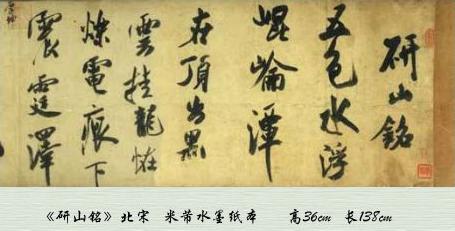 研山銘
五色水浮
崐崘潭
在頂出黑
雲挂龍怪
爍電痕下
震霆澤
《研山铭》北宋 米芾水墨纸本 高36cm 长138cm